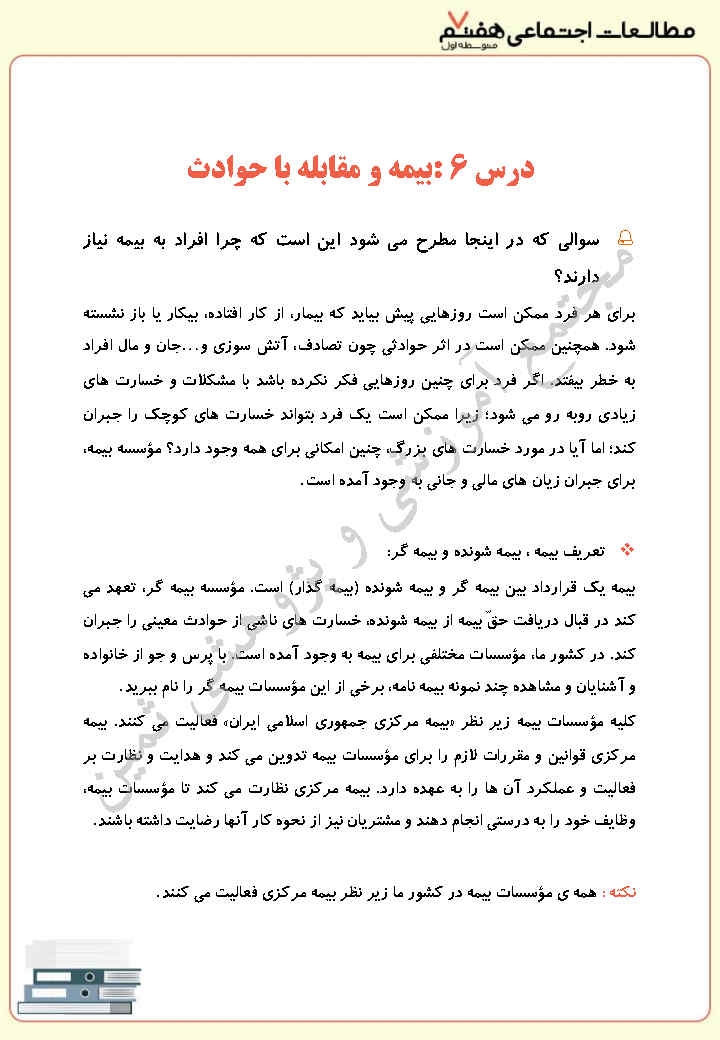 مطالعات اجتماعی هفتم ۷
متوسطه اول
درس ۶ :بیمه و مقابله با حوادث
سوالی که در اینجا مطرح می شود این است که چرا افراد به بیمه نیاز
دارند؟
برای هر فرد ممکن است روزهایی پیش بیاید که بیمار، از کار افتاده، بیکار یا باز نشسته
شود. همچنین ممکن است در اثر حوادثی چون تصادف، آتش سوزی و...جان و مال افراد
به خطر بیفتد. اگر فرد برای چنین روزهایی فکر نکرده باشد با مشکلات و خسارت های
زیادی روبه رو می شود؛ زیرا ممکن است یک فرد بتواند خسارت های کوچک را جبران
کند؛ اما آیا در مورد خسارت های بزرگ، چنین امکانی برای همه وجود دارد؟ مؤسسه بیمه،
برای جبران زیان های مالی و جانی به وجود آمده است.
تعریف بیمه ، بیمه شونده و بیمه گر:
بیمه یک قرارداد بین بیمه گر و بیمه شونده (بیمه گذار) است. مؤسسه بیمه گر، تعهد می
کند در قبال دریافت حقّ بیمه از بیمه شونده، خسارت های ناشی از حوادث معینی را جبران
کند. در کشور ما، مؤسسات مختلفی برای بیمه به وجود آمده است. با پرس و جو از خانواده
و آشنایان و مشاهده چند نمونه بیمه نامه، برخی از این مؤسسات بیمه گر را نام ببرید.
کلیه مؤسسات بیمه زیر نظر «بیمه مرکزی جمهوری اسلامی ایران» فعالیت می کنند. بیمه
مرکزی قوانین و مقررات لازم را برای مؤسسات بیمه تدوین می کند و هدایت و نظارت بر
فعالیت و عملکرد آن ها را به عهده دارد. بیمه مرکزی نظارت می کند تا مؤسسات بیمه،
وظایف خود را به درستی انجام دهند و مشتریان نیز از نحوه کار آنها رضایت داشته باشند.
نکته : همه ی مؤسسات بیمه در کشور ما زیر نظر بیمه مرکزی فعالیت می کنند.
مجتمع آموزشی و پژوهشی ثمین